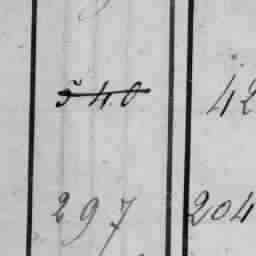 540 42
297 204